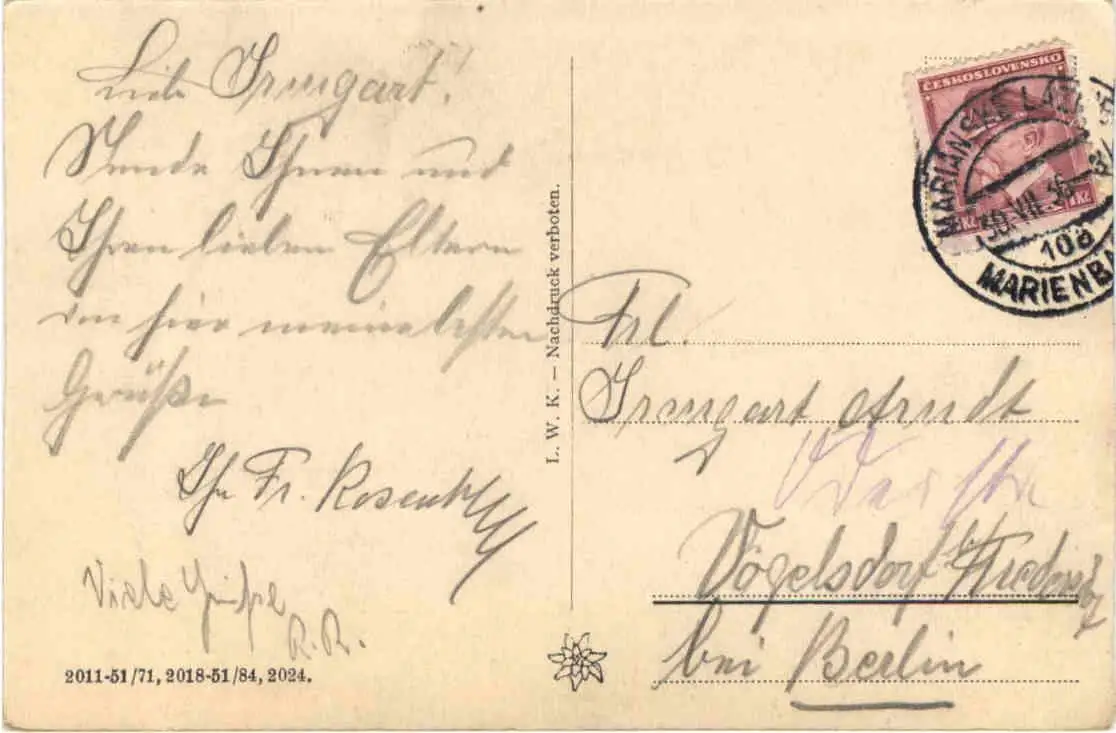 Liebe Irmgart!
Sende Ihnen und
Ihren lieben Eltern
von hier meine besten
Grüße
Ihr Fr.
Viele Grüße
R. R.
2011-51/71, 2018-51/84, 2024.
L. W. K. — Nachdruck verboten.
ČESKOSLOVENSKO
MARIÁNSKÉ LÁZ
30.VII.36
10a
MARIENBA
Frl.
Irmgart Arndt
Vogelsdorf
bei Berlin